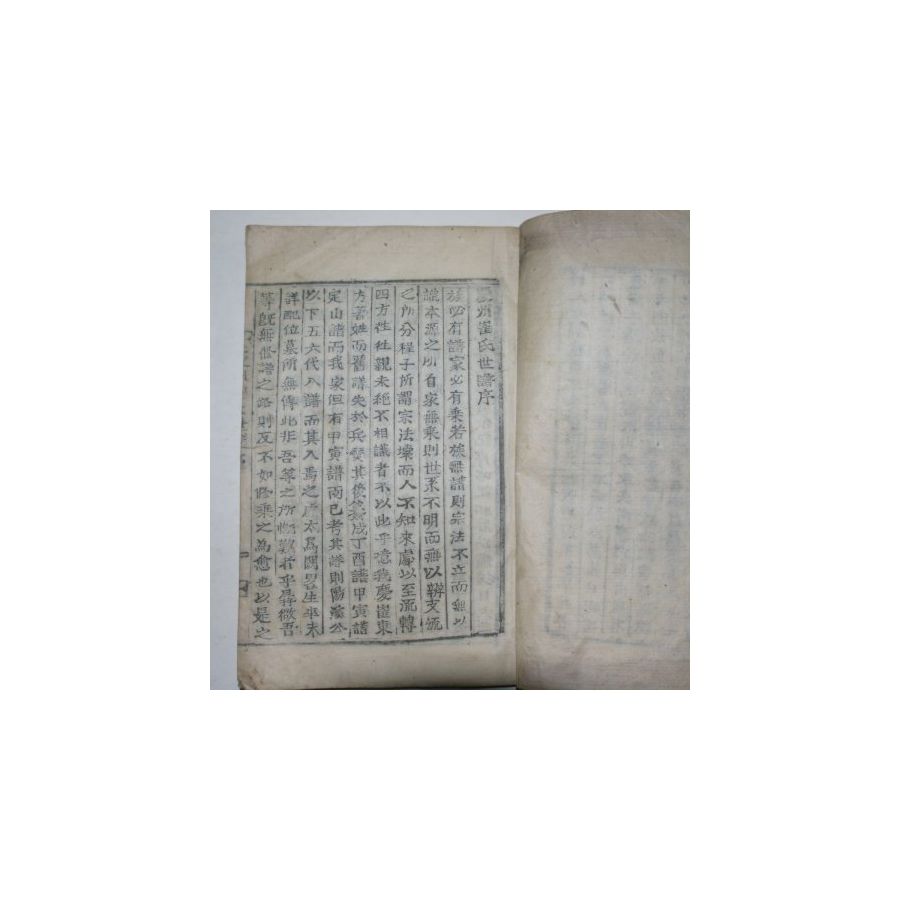 州崔氏世譜序
族必有譜家必有乘若族無譜則宗法不立而無以
識本源之所自家無乘則世系不明而無以辨支派
之所分程子所謂宗法壞而人不知來處以至流轉
四方徃徃親未絶不相識者不以此乎噫我慶崔東
方著姓而舊譜失於兵燹其後 成丁酉譜甲寅譜
定山譜而我家但有甲寅譜而已考其譜則陽 公
以下五六代入譜而其入焉之 太爲闊畧生卒未
詳配位墓所無傳此非吾等之所慨歎者乎 微吾
等旣無修譜之路則反不如修乘之為愈也以是之